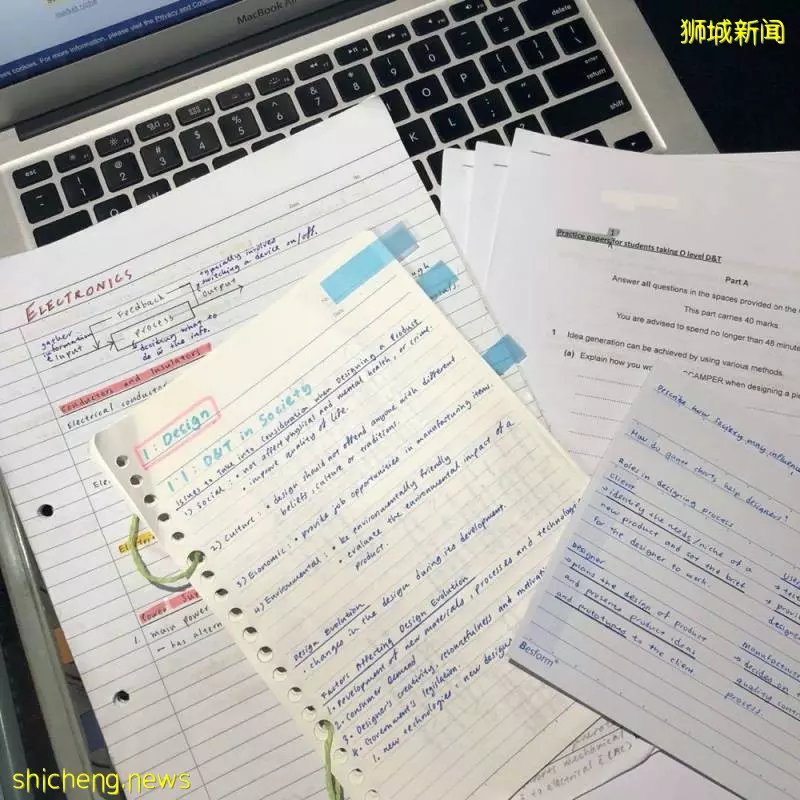 market.oscbar
For more information, please visit the Privacy and Cookies
MacBook Air
狮城新闻
esc
delete
enter
return
shift
ELECTRONICS
Feedback
Process
Output
typically involves
switching a device on/off.
gather
information
Input
deciding what to
do w the info.
Conductors and Insulators
Electrical conductor
Ele
Electri
Power Su
1. main power
- has altern
1: Design
1.1: D&T in Society
Issues to take into consideration when designing a product
1) Social: • not affect physical and mental health, or crime.
• improve quality of life.
2) Culture: • design should not offend anyone with different
beliefs, culture or traditions.
3) Economic: • provide job opportunities in manufacturing items.
4) Environmental: • be environmentally friendly
• evaluate the environmental impact of a
product.
Design Evolution
• changes in the design during its development.
Factors Affecting Design Evolution
1. Development of new materials, processes and technologi
2. Consumer Demand
3. Designer's creativity, resourcefulness and motivati
4. Government's legislation.
1. new technologies, new designs
1
Practice papers for students taking O level D&T
Part A
Answer all questions in the spaces provided on the
This part carries 40 marks.
You are advised to spend no longer than 48 minute
1 Idea generation can be achieved by using various methods.
(a) Explain how you wo
SCAMPER when designing a pi
Describe how society may influenc
How do gantt charts help designers?
Roles in designing process
client
→ identify the needs/niche of a
new product and set the brief
for the designer to work.
Designer
→ plans the design of product
and presents product ideas
and prototypes to the client
User
→ provi
designe
Manufacture
→ decides on
quality contr
process.
Besform
mechanical
to electrical
shicheng.news